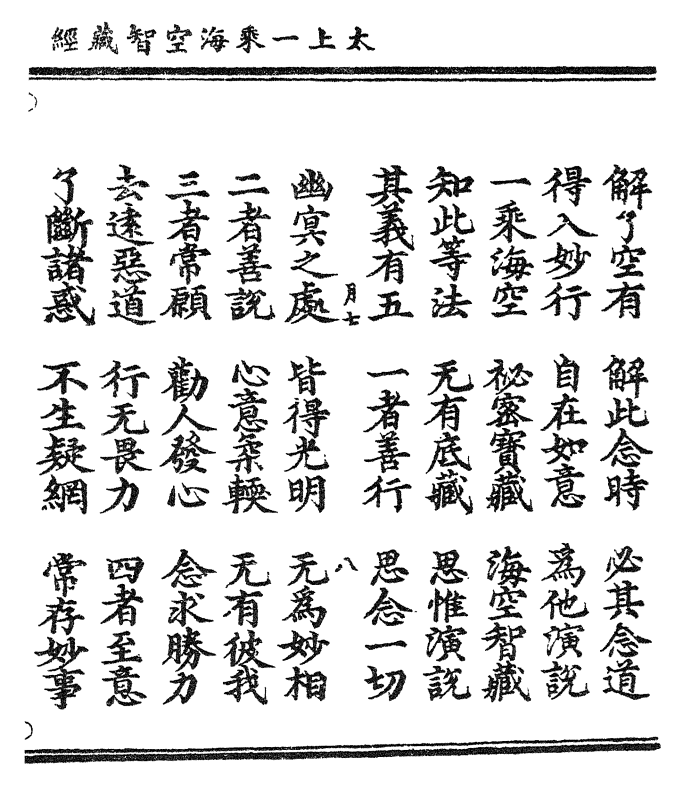 太上一乘海空智藏經
解了空有 解此念時 必其念道
得入妙行 自在如意 為他演說
一乘海空 祕密寶藏 海空智藏
知此等法 无有底藏 思惟演說
其義有五 一者善行 思念一切
月七 八
幽冥之處 皆得光明 无為妙相
二者善說 心意柔輭 无有彼我
三者常願 勸人發心 念求勝力
去逺惡道 行无畏力 四者至意
了斷諸惑 不生疑網 常存妙事